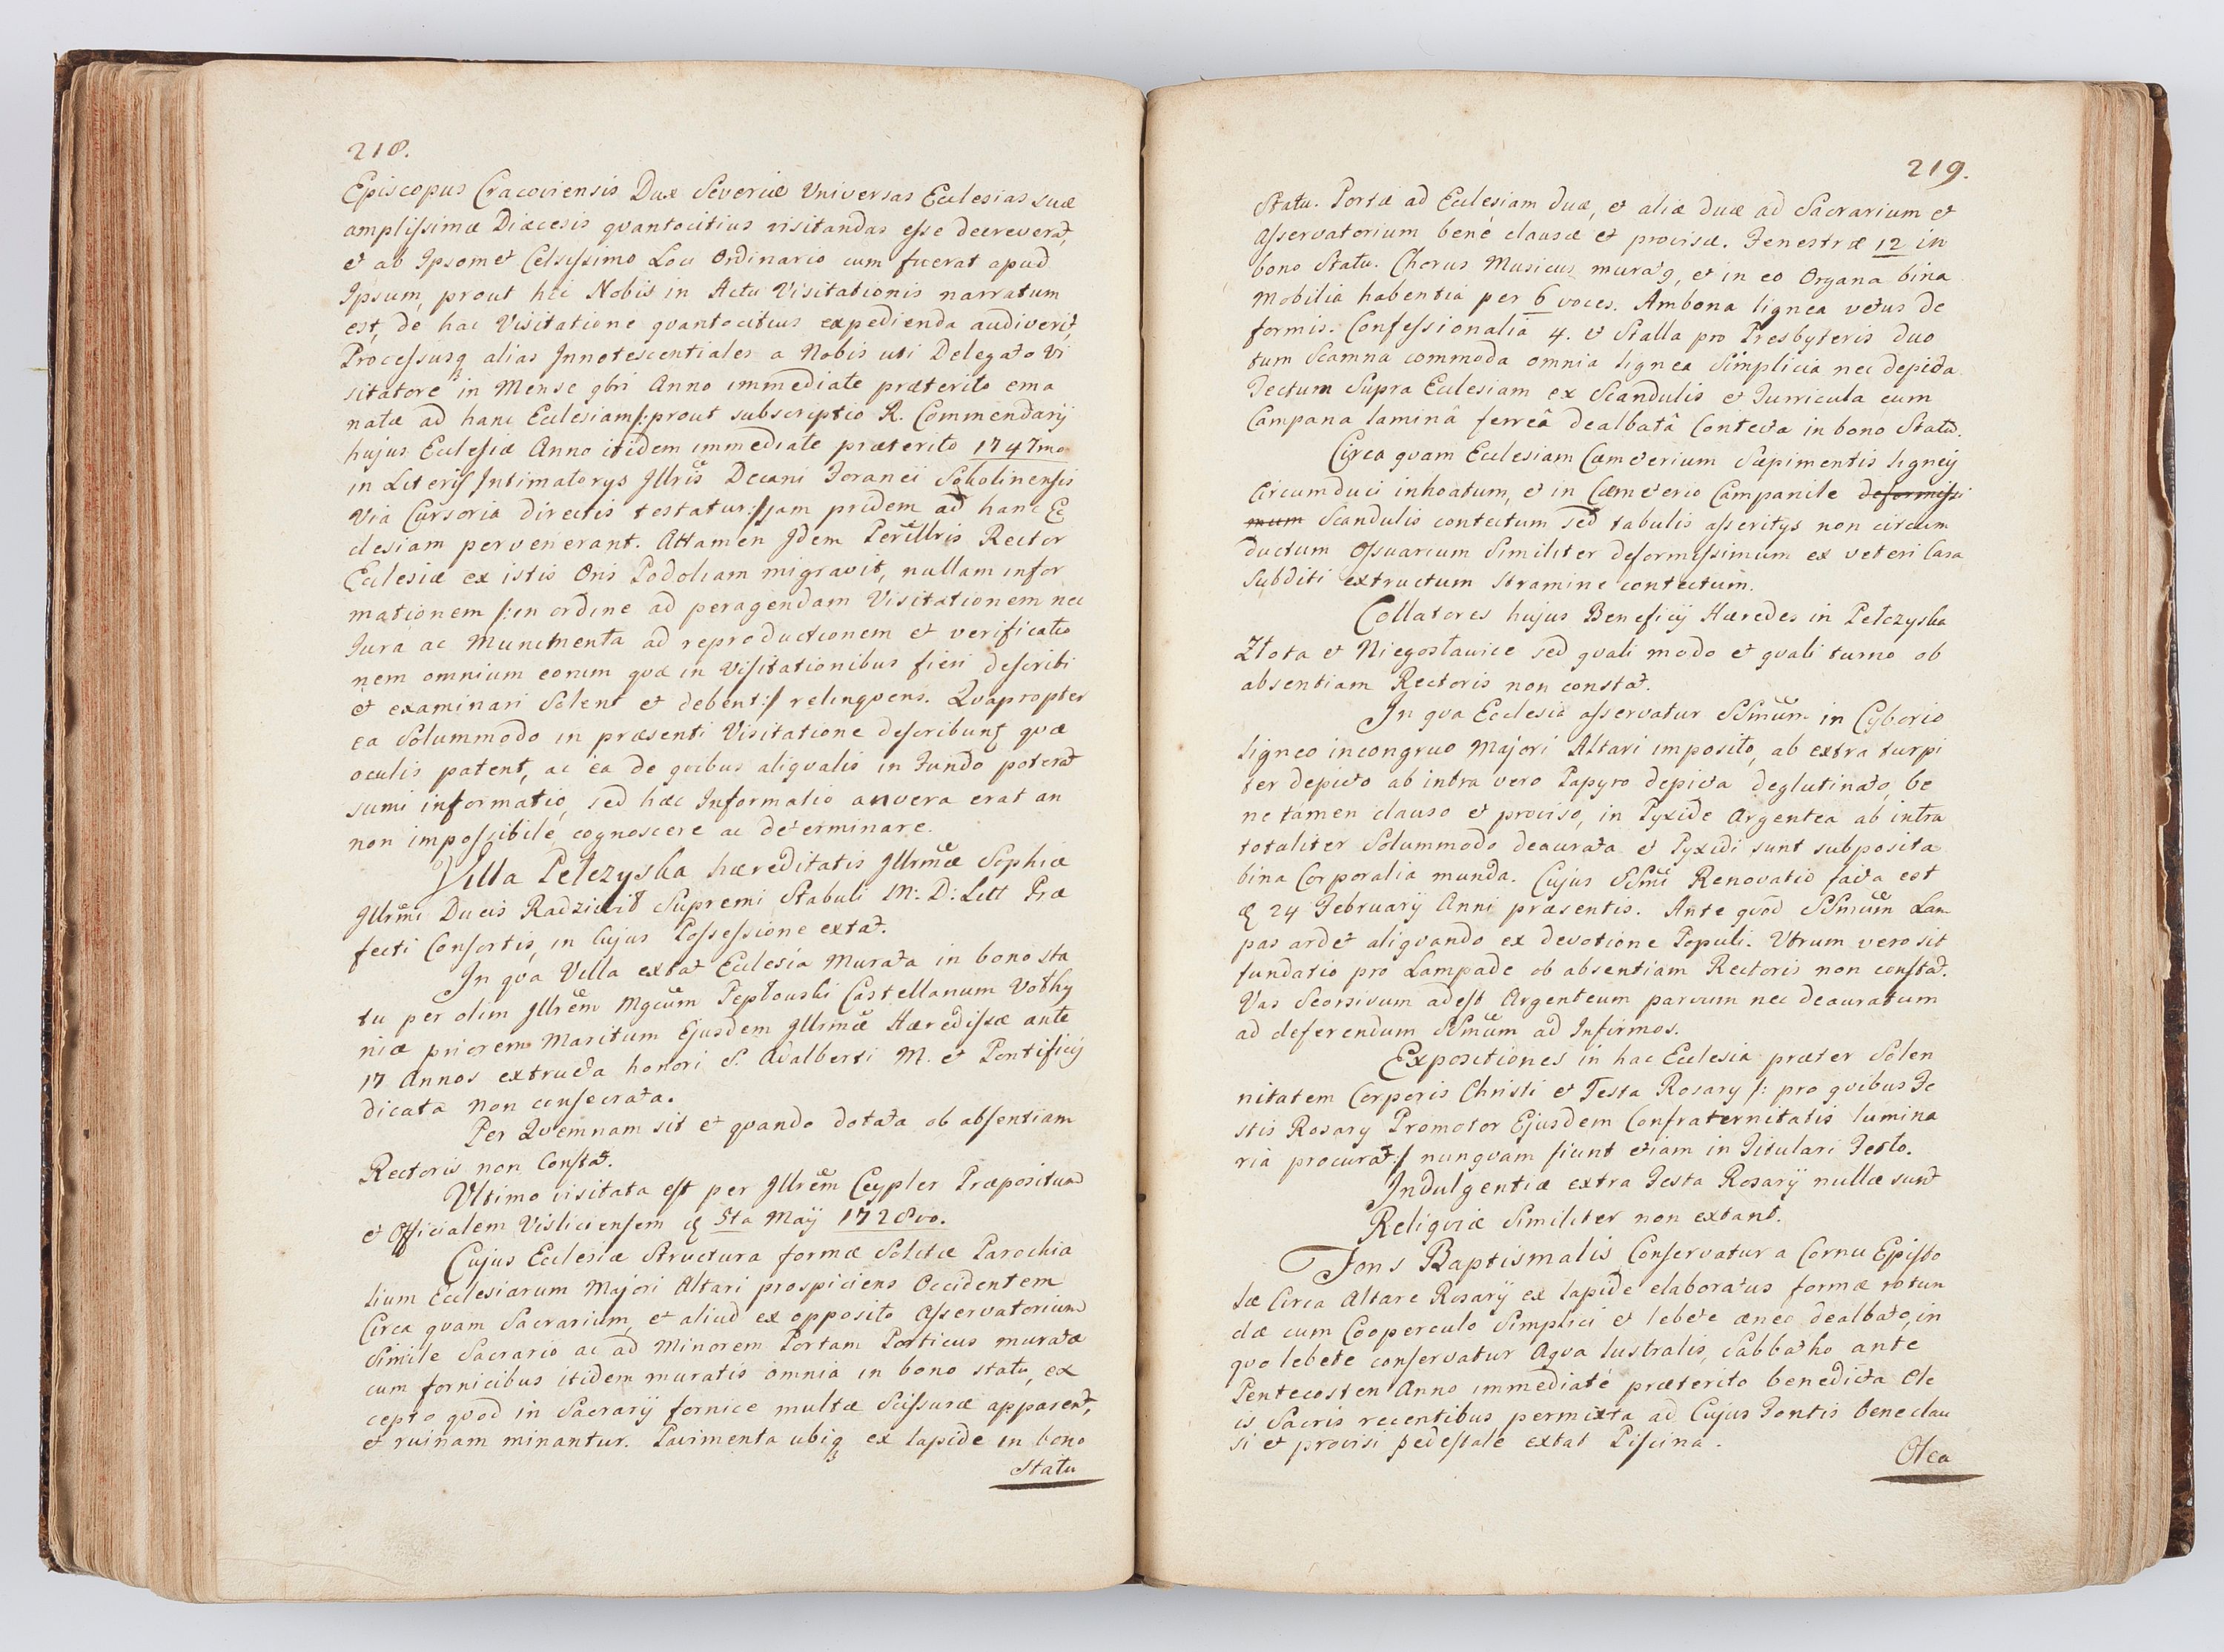 218.
Episcopus Cracoviensis Dux Severiæ Universas Ecclesias suæ
amplissimæ Diæcesis quantocitius visitandas esse decreverat,
et ab Ipsomet Celsissimo Loci Ordinario cum fuerat apud
Ipsum, prout hic Nobis in Actu Visitationis narratum
est, de hac Visitatione quantocitius expedienda audiverit,
Processusq alias Innotescentiales a Nobis uti Delegato Vi
sitatore in Mense 9bri Anno immediate præterito ema
natæ ad hanc Ecclesiam /: prout subscriptio R. Commendarij
hujus Ecclesiæ Anno itidem immediate præterito 1747mo
in Literis Intimatorys Illris Decani Foranei Sokolinensis
Via Cursoria directis testatur :/ jam pridem ad hanc Ec
clesiam pervenerant. Attamen Idem Perillris Rector
Ecclesiæ ex istis Oris Podoliam migravit, nullam infor
mationem /: in ordine ad peragendam Visitationem nec
Jura ac Munimenta ad reproductionem et verificatio
nem omnium eorum quæ in Visitationibus fieri describi
et examinari Solent et debent :/ relinquens. Quapropter
ea Solummodo in præsenti Visitatione describunt quæ
oculis patent, ac ea de quibus aliqualis in Fundo poterat
sumi informatio, sed hæc Informatio an vera erat an
non impossibile, cognoscere ac determinare.
Villa Pełczyska hæreditatis Illrmæ Sophiæ
Illrmi Ducis Radziwił Supremi Stabuli M: D: Litt Præ
fecti Consortis, in Cujus Possessione extat.
In qua Villa extat Ecclesia Murata in bono sta
tu per olim Illrem Mgcum Pepłouski Castellanum Voyhy
niæ priorem Maritum Ejusdem Illrmæ Hæredissæ ante
17 Annos extructa honori S. Adalberti M. et Pontificij
dicata non consecrata.
Per Quemnam sit et quando dotata ob absentiam
Rectoris non Constat.
Ultimo visitata est per Illrem Ceypler Præpositum
et Officialem Visliciensem 5ta Maij 1728vo.
Cujus Ecclesiæ Structura formæ Solitæ Parochia
lium Ecclesiarum Majori Altari prospiciens Occidentem
Circa quam Sacrarium, et aliud ex opposito Asservatorium
Simile Sacrario ac ad Minorem Portam Porticus muratæ
cum fornicibus itidem muratis omnia in bono statu, ex
cepto quod in Sacrarij fornice multæ Scissuræ apparent,
et ruinam minantur. Pavimenta ubiq ex lapide in bono
statu
219.
Statu. Portæ ad Ecclesiam duæ, et aliæ duæ ad Sacrarium et
Asservatorium bene clausæ et provisæ. Fenestræ 12 in
bono Statu. Chorus Musicus murat9, et in eo Organa bina
Mobilia habentia per 6 voces. Ambona lignea vetus de
formis. Confessionalia 4. et Stalla pro Presbyteris duo
tum Scamna commoda omnia lignea Simplicia nec depicta
Tectum Supra Ecclesiam ex Scandulis et Turricula cum
Campana laminâ ferreâ dealbatâ Contecta in bono Statu.
Circa quam Ecclesiam Cæmeterium Sæpimentis ligneij
Circumduci inhoatum, et in Cæmeterio Campanile deformissi
mum Scandulis contectum sed tabulis asseritys non circum
ductum Ossuarium Similiter deformissimum ex veteri Casa
Subditi extructum Stramine contectum.
Collatores hujus Beneficij Hæredes in Pełczyska
Złota et Niegosłauice sed quali modo et quali turno ob
absentiam Rectoris non constat.
In qua Ecclesia asservatur SSmum in Cyborio
ligneo incongruo Majori Altari imposito, ab extra turpi
ter depicto ab intra vero Papyro depicta deglutinato, be
ne tamen clauso et proviso, in Pyxide Argentea ab intra
totaliter Solummodo deaurata et Pyxidi sunt subposita
bina Corporalia munda. Cujus SSmi Renovatio facta est
24 February Anni præsentis. Ante quod SSmum Lam
pas ardet aliquando ex devotione Populi. Utrum vero sit
fundatio pro Lampade ob absentiam Rectoris non constat.
Vas Seorsivum adest Argenteum parvum nec deauratum
ad deferendum SSmum ad Infirmos.
Expositiones in hac Ecclesia præter Solen
nitatem Corporis Christi et Festa Rosary /: pro quibus Fe
stis Rosary Promotor Ejusdem Confraternitatis lumina
ria procurat :/ nunquam fiunt etiam in Titulari Festo.
Indulgentiæ extra Festa Rosarij nullæ sunt
Reliquiæ Similiter non extant.
Fons Baptismalis Conservatur a Cornu Episto
læ Circa Altare Rosarij ex lapide elaboratus formæ rotun
dæ cum Cooperculo Simplici et lebete æneo dealbato, in
quo lebete conservatur Aqua lustralis, Sabbatho ante
Pentecosten Anno immediate præterito benedicta Ole
is Sacris recentibus permixta ad Cujus Fontis bene clau
si et provisi pedestale extat Piscina.
Olea